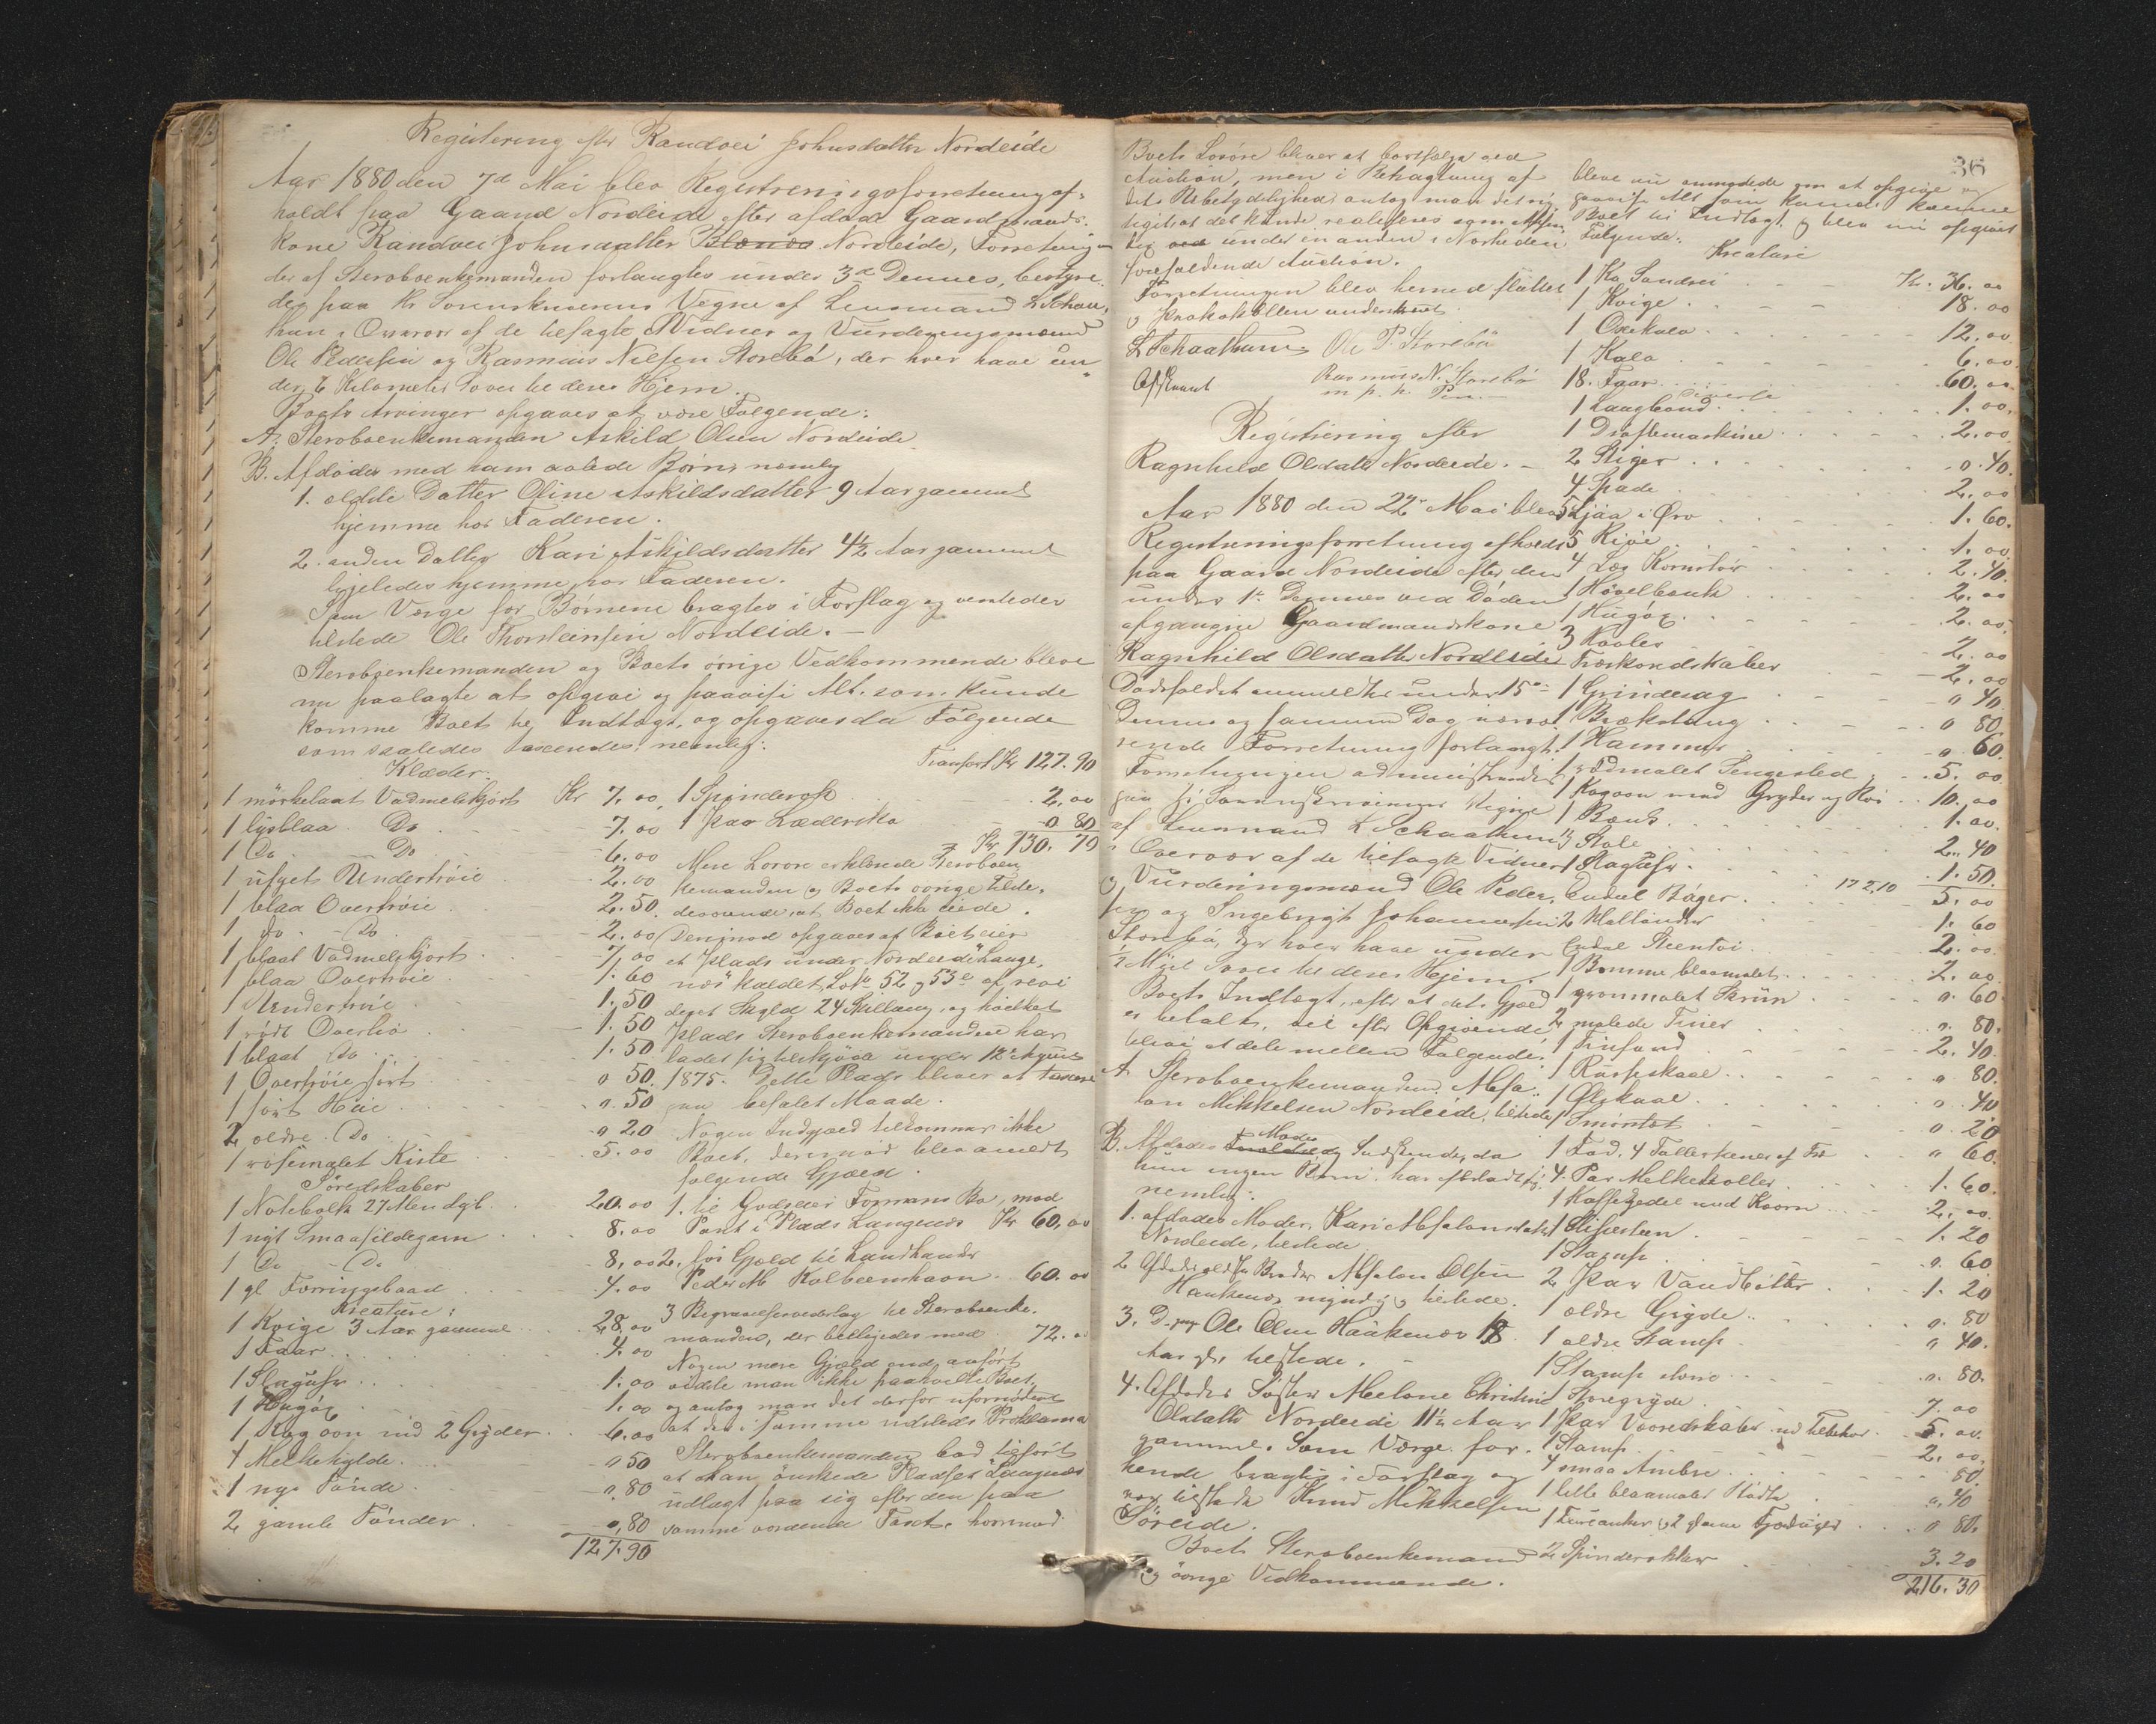 Registering efter Randvei Johnsdatter Nordeide
Aar 1880 den 7de Mai blev Registreringsforretning af-
holdt paa Gaard Nordeide efter afdøde Gaardmands-
kone Randvei Johnsdatter Nordeide, Forretningen
der af Sterboenkemanden forlangtes under 3de Dennes, bestyre-
des paa Hr Sorenskriverens Vegne af Lensmand L Schaat-
hun i Overvær af de tilsagte Vidner og Vurderingsmænd
Ole Pedersen og Rasmus Nilsen Storebø, der hver have un-
der 6 Kilometer Vei til deres Hjem.
Boets Arvinger opgaves at være Følgende:
A. Sterboenkemanden Askild Olsen Nordeide
B. Afdødes med ham avlede Børn, nemlig
1. ældste Datter Oline Askildsdatter 9 Aar gammel
hjemme hos Faderen.
2. anden Datter Kari Askildsdatter 4½ Aar gammel
ligeledes hjemme hos Faderen.
Som Værge for Børnene bragtes i Forslag og
tilstede Ole Thorsteinsen Nordeide. -
Sterboenkemanden og Boets øvrige Vedkommende bleve
nu paalagte at opgive og paavise Alt, som kunde
komme Boet til Indtægt, og opgaves da Følgende
som saaledes taxeredes, nemlig:
Klæder.
1 mørkelaat Vadmelskjort Kr 7.00
1 lysblaa Do - 7.00
1 Do - Do - 6.00
1 Undertrøie 2.00
1 blaa Overtrøie 2.50
1 do - Do 2.00
1 blaat Vadmelskjort - 7,00
1 blaa Overtrøie 1.60
1 Undertrøie 1.50
1 rødt Overliv - 1.50
1 blaat Do 1.50
1 Overtrøie sort 0 50.
1 sort Hue 0.50
2 ældre Do 0 20
1 rosemalet Kiste 5.00
Søredskaber
1 Notebolk 27 Men dgl. 20.00
1 nyt Smaasildegarn 8.00
1 Do - Do 8,00
1 gl Torringebaad 4.00
Kreature:
1 Kvige 3 Aar gammel 28,00
1 Faar 4.00
1 Slagufse 1.00
1 Hugøx 1.00
1 Kagoon md 2 Gryder 6.00
4 Melkehylde 0 50
1 nye Tønde 0.80
2 gamle Tønder 0,80
127.90
Transport Kr 127.90
1 Spinderok 2,00
1 Par Lædersko 0 80
Kr 130.70
Mere Løsøre erklærede Sterboen-
kemanden og Boets øvrige Tilste-
deværende, at Boet ikke eiede.
Derimod opgaves at Boet eier
et Plads under Nordeide "Lange-
næs" kaldet, Lb No 52 og 53 a af revi-
deret Skyld 24 Skilling, og hvilket
Plads Sterboenkemanden har
ladet sig tilskjøde under 12te August
1875. Dette Plads bliver at taxere
paa befalet Maade.
Nogen Indgjæld tilkommer ikke
Boet, derimod blev anmeldt
følgende Gjæld.
1. til Godseier Formans Bo, mod
Pant i Pladset Langenæs Kr 60,00
2. for Gjæld til Landhandler
Peder M Kolbeenshavn 60.00
3 Begravelsesvederlag til Sterboenke-
manden, der billigedes med 72.00
Nogen mere Gjæld end anført
vidste man ikke paahvilte Boet,
og antog man det derfor ufornødent
at der i samme udstedes Proklama
Sterboenkemanden bad tilført
at han ønskede Pladset Langenæs
udlagt paa sig efter den paa
samme vordende Taxt, hvormod
36
Boets Løsøre bliver at bortsælge ved
Auction, men i Betragtning af
dets Ubetydelighed, antog man det rig-
tigst at det kunde realiseres
under en anden i Nærheden
forefaldende Auction.
Forretningen blev hermed sluttet
og Protokollen underskrevet.
L Schaathun Ole P. Storebø
Rasmus N. Storebø
m. p. P.
Afskrevet
Registrering efter
Ragnhild Olsdatter Nordeide. -
Aar 1880 den 22de Mai blev
Registreringsforretning afholdt
paa Gaard Nordeide efter den
under 1ste Dennes ved Døden
afgangne Gaardmandskone
Ragnhild Olsdatter Nordeide
Dødsfaldet anmeldtes under 15de
Dennes og samme Dag nærvæ-
rende Forretning forlangt.
Forretningen administreredes
paa Hr Sorenskriverens Vegne
af Lensmand L Schaathun
i Overvær af de tilsagte Vidner
og Vurderingsmænd Ole Peder-
sen og Ingebrigt Johannesen
Storebø, der hver have under
½ Miil Vei til deres Hjem.
Boets Indtægt, efter at dets Gjæld
er betalt, vil efter Opgivende
blive at dele mellem Følgende:
A. Sterboenkemanden Absa-
lon Mikkelsen Nordeide, tilstede
B. Afdødes Moder og Sødskende, da
hun ingen Børn har efterladt sig,
nemlig:
1. afdødes Moder, Kari Absalonsdatter
Nordeide, tilstede
2 Afdødes ældste Broder Absalon Olsen
Haukenæs myndig og tilstede.
3. Do yngre Ole Olsen Haukenæs 18
Aar gl. tilstede. -
4. Afdødes Søster Meelene Christine
Olsdatter Nordeide 11½ Aar
gammel. Som Værge for
hende bragtes i Forslag og
var tilstede Knud Mikkelsen
Søreide.
Boets Sterboenkemand
og øvrige Vedkommende.
bleve nu anmodede om at opgive og
paavise Alt som kunde komme
Boet til Indtægt, og blev nu opgivet
Følgende:
Kreature
1 Ko Sandrei Kr. 36.00
1 Kvige 18.00
1 Oxekalv 12,00
1 Kalv 6.00
18. Faar 60.00
Diverse
1 Laagbaand 1.00,
1 Drøftemaskine 2.00
2 Stiger 0.40.
4 Spade 2.00
5 Ljaa i Orv 1.60.
5 Rive 1.00
4 Læg Kornstør 2.40.
1 Høvelbænk 2.00
1 Hugøx 2.00
3 Navler 2.00
Træskoredskaber 2.00
1 Grindesag 0 40
1 Brækstang 0 80
1 Hammer 0 60.
1 rødmalet Sengested 5.00
1 Kagoon med Gryder og Rør 10.00
1 Bænk 1.00.
3 Stole 2.40
1 Slagufse 1.50.
172,10
Endeel Bøger 5.00
2 Matlinder 1.60
Endeel Steentøi 2.00.
1 Bomme blaamalet 2.00
1 grønmalet Skriin 0.60
2 malede Tiner 0.80.
1 Tinfand 2.40.
1 Rusfeskaal 0 80.
1 Ølskaal 0.40
1 Smørtat 0.20
1 Fad. 4 Tallerkener af Træ 0 60.
4. Par Melkekoller 1.60.
1 Kaffekjedel med Kværn 2,00.
1 Slipesteen 1.20
1 Stamp 0.60
2 Par Vandbøtter 1.20
1 ældre Gryde 0.80
1 ældre Stamp 0 40.
1 Stamp større 0.80.
1 Storegryde 7.00
1 Par Væveredskaber md Tilbehør 5.00.
1 Stamp 2,00,
4 smaa Ambre 80
1 lille blaamalet Bøtte 0,40
0 80.
2 Spinderokker 3.20
216.30